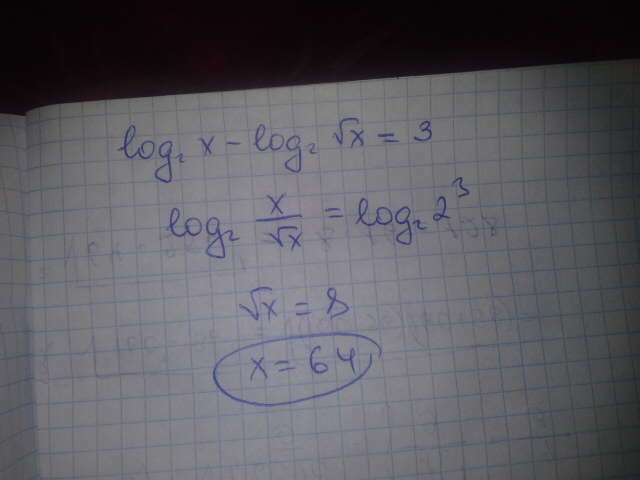 log₂ x - log₂ √x = 3
log₂ x/√x = log₂ 2³
√x = 8
x = 64